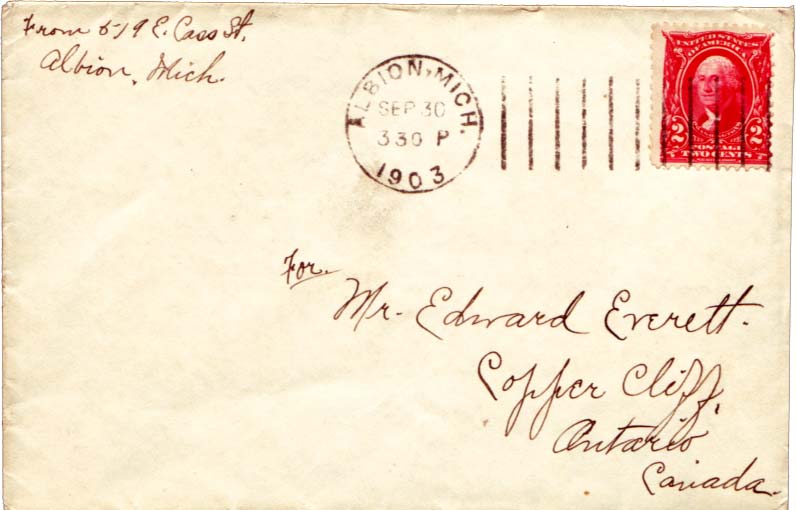 From 519 E. Cass St.
Albion, Mich.
ALBION, MICH.
SEP 30
330 P
1903
UNITED STATES
OF AMERICA
2 2
POSTAGE
TWO CENTS
For.
Mr. Edward Everett.
Copper Cliff,
Ontario
Canada.